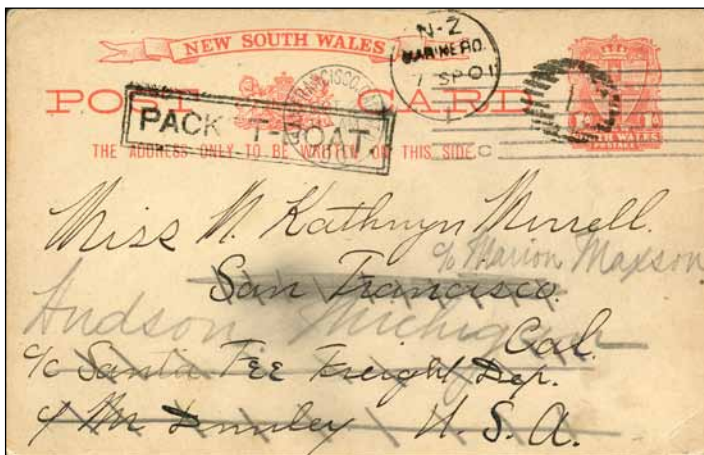 NEW SOUTH WALES
N-Z
MARINE P.O.
7 SP 01
POST CARD
SAN FRANCISCO, CAL
PACK T-BOAT.
THE ADDRESS ONLY TO BE WRITTEN ON THIS SIDE.
SOUTH WALES
POSTAGE
Miss N. Kathryn Merrell.
c/o Marion Maxson
San Francisco.
Hudson Michigan
Cal.
c/o Santa Fee Freight Dep.
c/ Mr U.S.A.